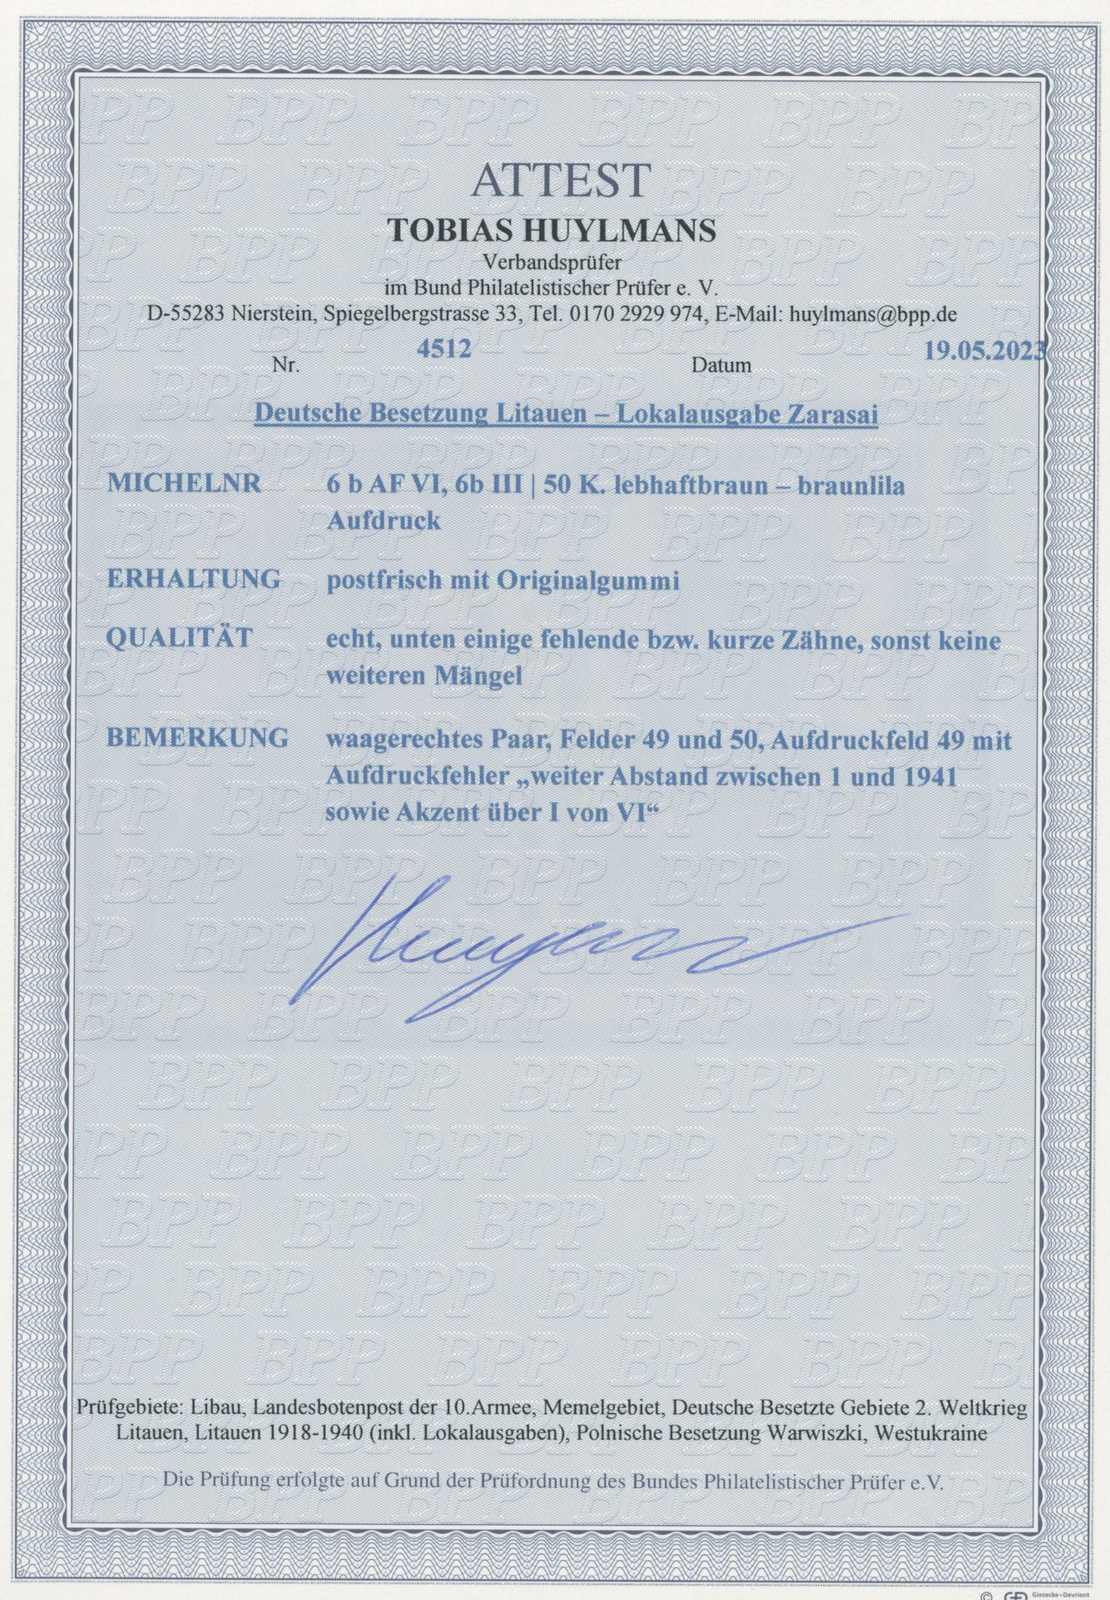 ATTEST
TOBIAS HUYLMANS
Verbandsprüfer
im Bund Philatelistischer Prüfer e. V.
D-55283 Nierstein, Spiegelbergstrasse 33, Tel. 0170 2929 974, E-Mail: huylmans@bpp.de
Nr. 4512 Datum 19.05.2023
Deutsche Besetzung Litauen – Lokalausgabe Zarasai
MICHELNR 6 b AF VI, 6b III | 50 K. lebhaftbraun – braunlila
Aufdruck
ERHALTUNG postfrisch mit Originalgummi
QUALITÄT echt, unten einige fehlende bzw. kurze Zähne, sonst keine
weiteren Mängel
BEMERKUNG waagerechtes Paar, Felder 49 und 50, Aufdruckfeld 49 mit
Aufdruckfehler „weiter Abstand zwischen 1 und 1941
sowie Akzent über I von VI“
Prüfgebiete: Libau, Landesbotenpost der 10.Armee, Memelgebiet, Deutsche Besetzte Gebiete 2. Weltkrieg
Litauen, Litauen 1918-1940 (inkl. Lokalausgaben), Polnische Besetzung Warwiszki, Westukraine
Die Prüfung erfolgte auf Grund der Prüfordnung des Bundes Philatelistischer Prüfer e.V.
© Giesecke+Devrient